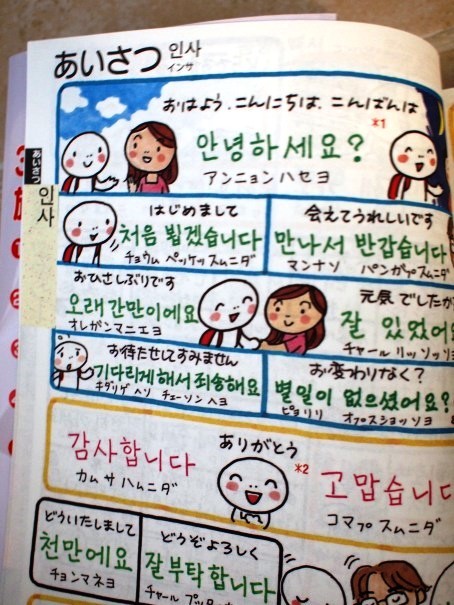 あいさつ 인사
インサ
あいさつ
인사
おはよう、こんにちは、こんばんは
*1
안녕하세요?
アンニョンハセヨ
はじめまして
처음 뵙겠습니다
チョウム ペッケッスムニダ
会えてうれしいです
만나서 반갑습니다
マンナソ パンガプスムニダ
おひさしぶりです
오래간만이에요
オレガンマニエヨ
元気でしたか
잘 있었어
チャール リッソッソ
お待たせしてすみません
기다리게해서 죄송해요
キダリゲ ヘソ チェーソン ヘヨ
お変わりなく?
별일이 없으셨어요?
ピョリリ オプスショッソヨ
ありがとう
감사합니다
カムサハムニダ
*2
고맙습니다
コマプスムニダ
どういたしまして
천만에요
チョンマネヨ
どうぞよろしく
잘부탁합니다
チャール